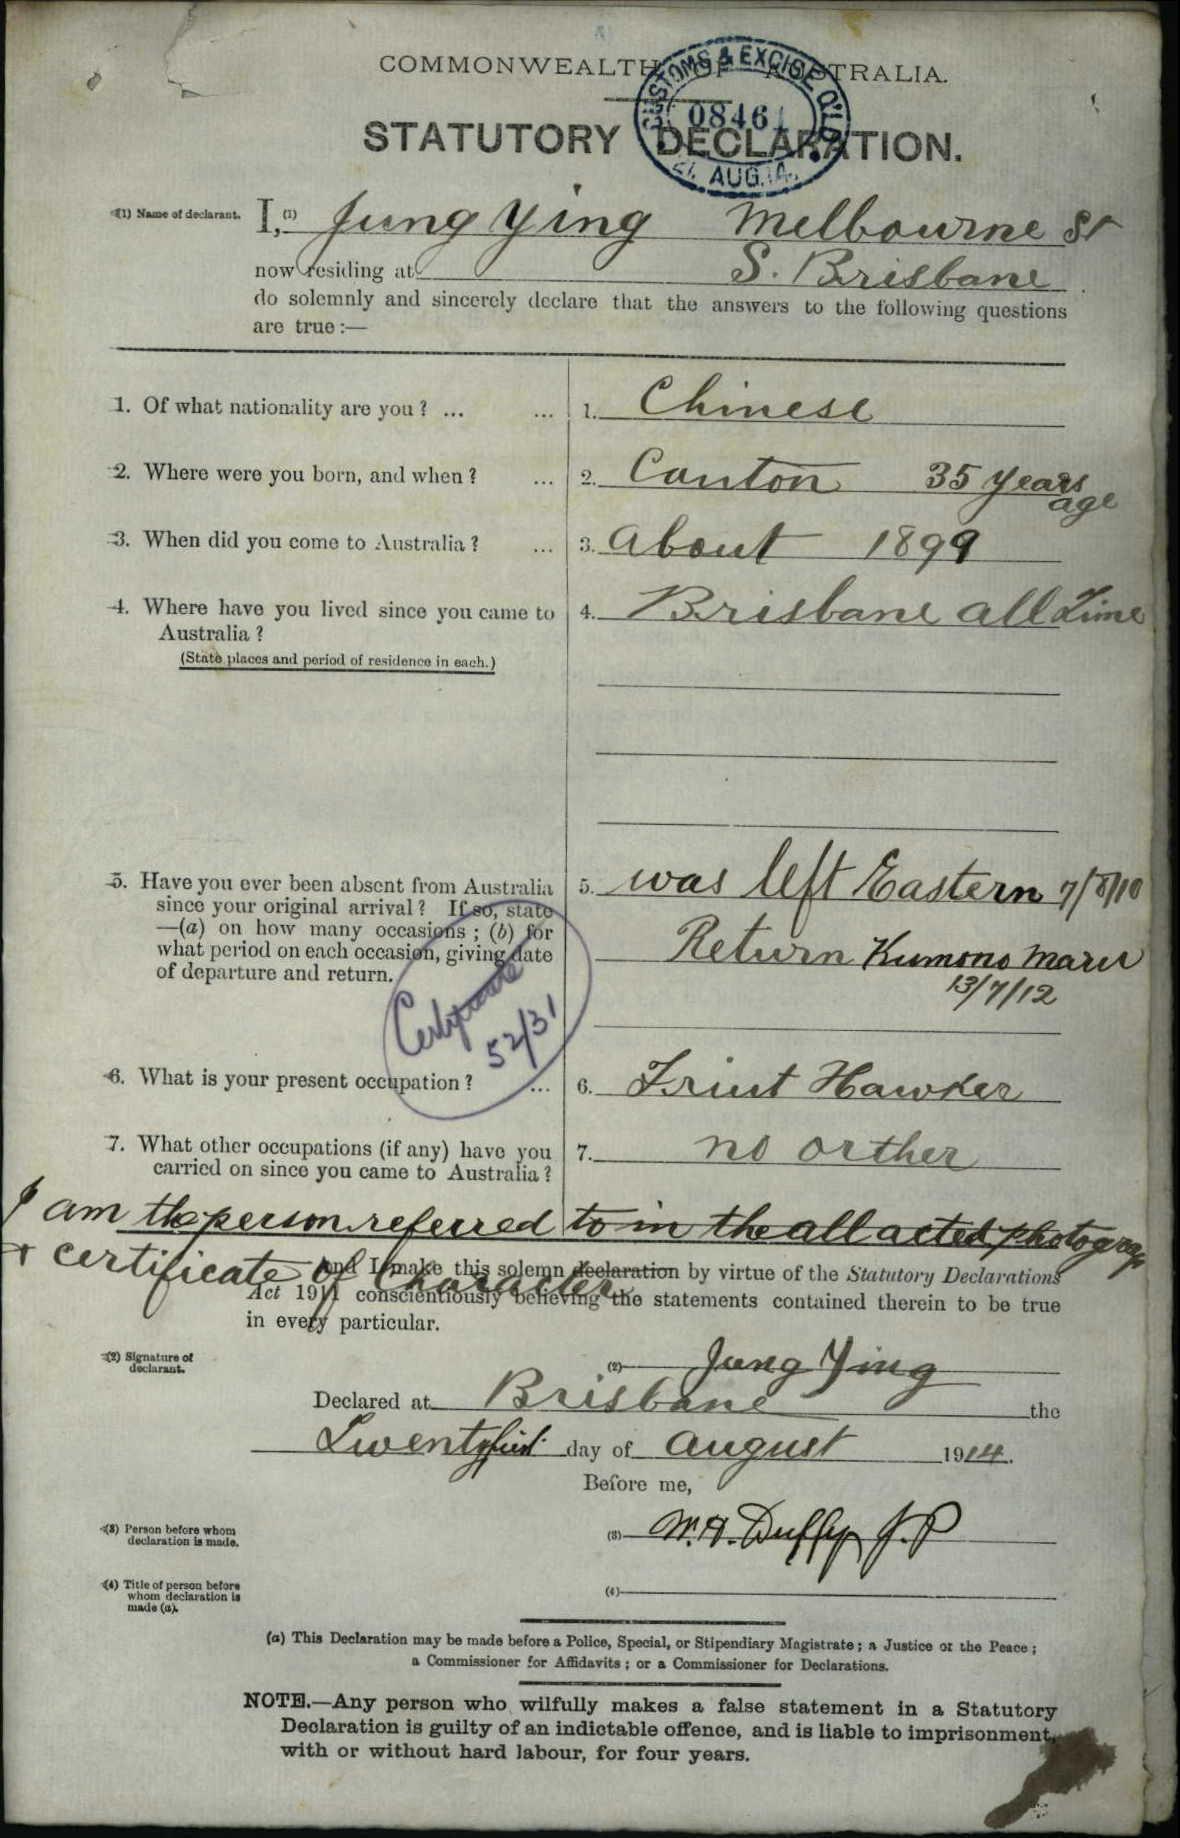 COMMONWEALTH OF AUSTRALIA.
CUSTOMS & EXCISE Q'LD
08461
AUG.14
STATUTORY DECLARATION.
(1) Name of declarant. I, (1) Jung Ying Melbourne St
now residing at S. Brisbane
do solemnly and sincerely declare that the answers to the following questions
are true:—
1. Of what nationality are you? ... ... 1. Chinese
2. Where were you born, and when? ... 2. Canton 35 years
age
3. When did you come to Australia? ... 3. about 1899
4. Where have you lived since you came to 4. Brisbane all time
Australia?
(State places and period of residence in each.)
5. Have you ever been absent from Australia 5. was left Eastern 7/8/10
since your original arrival? If so, state
—(a) on how many occasions; (b) for Return Kumono Maru
what period on each occasion, giving date
of departure and return. 13/7/12
Certificate
52/31
6. What is your present occupation? ... 6. Friut Hawker
7. What other occupations (if any) have you 7. no orther
carried on since you came to Australia?
I am the person referred to in the all acted photograp
+ certificate of Character
And I make this solemn declaration by virtue of the Statutory Declarations
Act 1911 conscientiously believing the statements contained therein to be true
in every particular.
(2) Signature of (2) Jung Ying
declarant.
Declared at Brisbane the
Twentyfirst day of august 1914.
Before me,
(3) Person before whom (3) W. H. Duffy J.P
declaration is made.
(4) Title of person before (4)
whom declaration is
made (a).
(a) This Declaration may be made before a Police, Special, or Stipendiary Magistrate; a Justice of the Peace;
a Commissioner for Affidavits; or a Commissioner for Declarations.
NOTE.—Any person who wilfully makes a false statement in a Statutory
Declaration is guilty of an indictable offence, and is liable to imprisonment,
with or without hard labour, for four years.